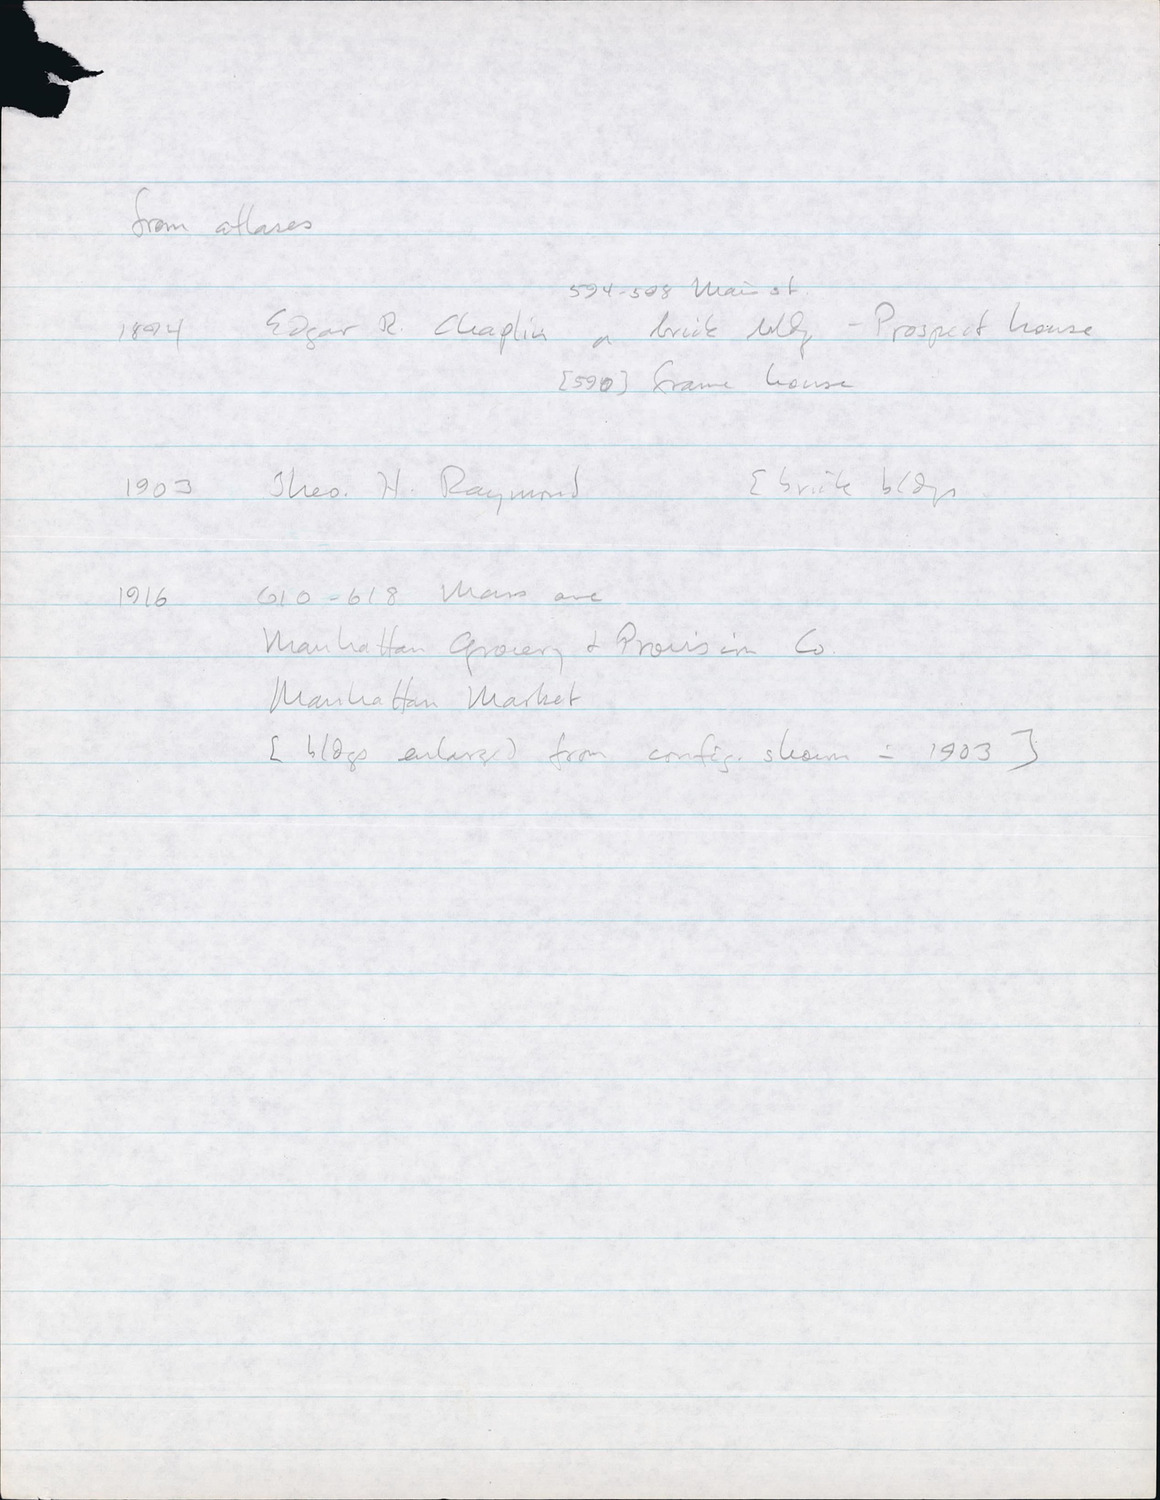 from atlases
594-598 Main st.
1894 Edgar R. Chaplin a brick bldg - Prospect house
[590] frame house
1903 Theo. H. Raymond [brick bldgs
1916 610-618 Mass ave
Manhattan Grocery & Provision Co.
Manhattan Market
[bldgs enlarged from config. shown in 1903]